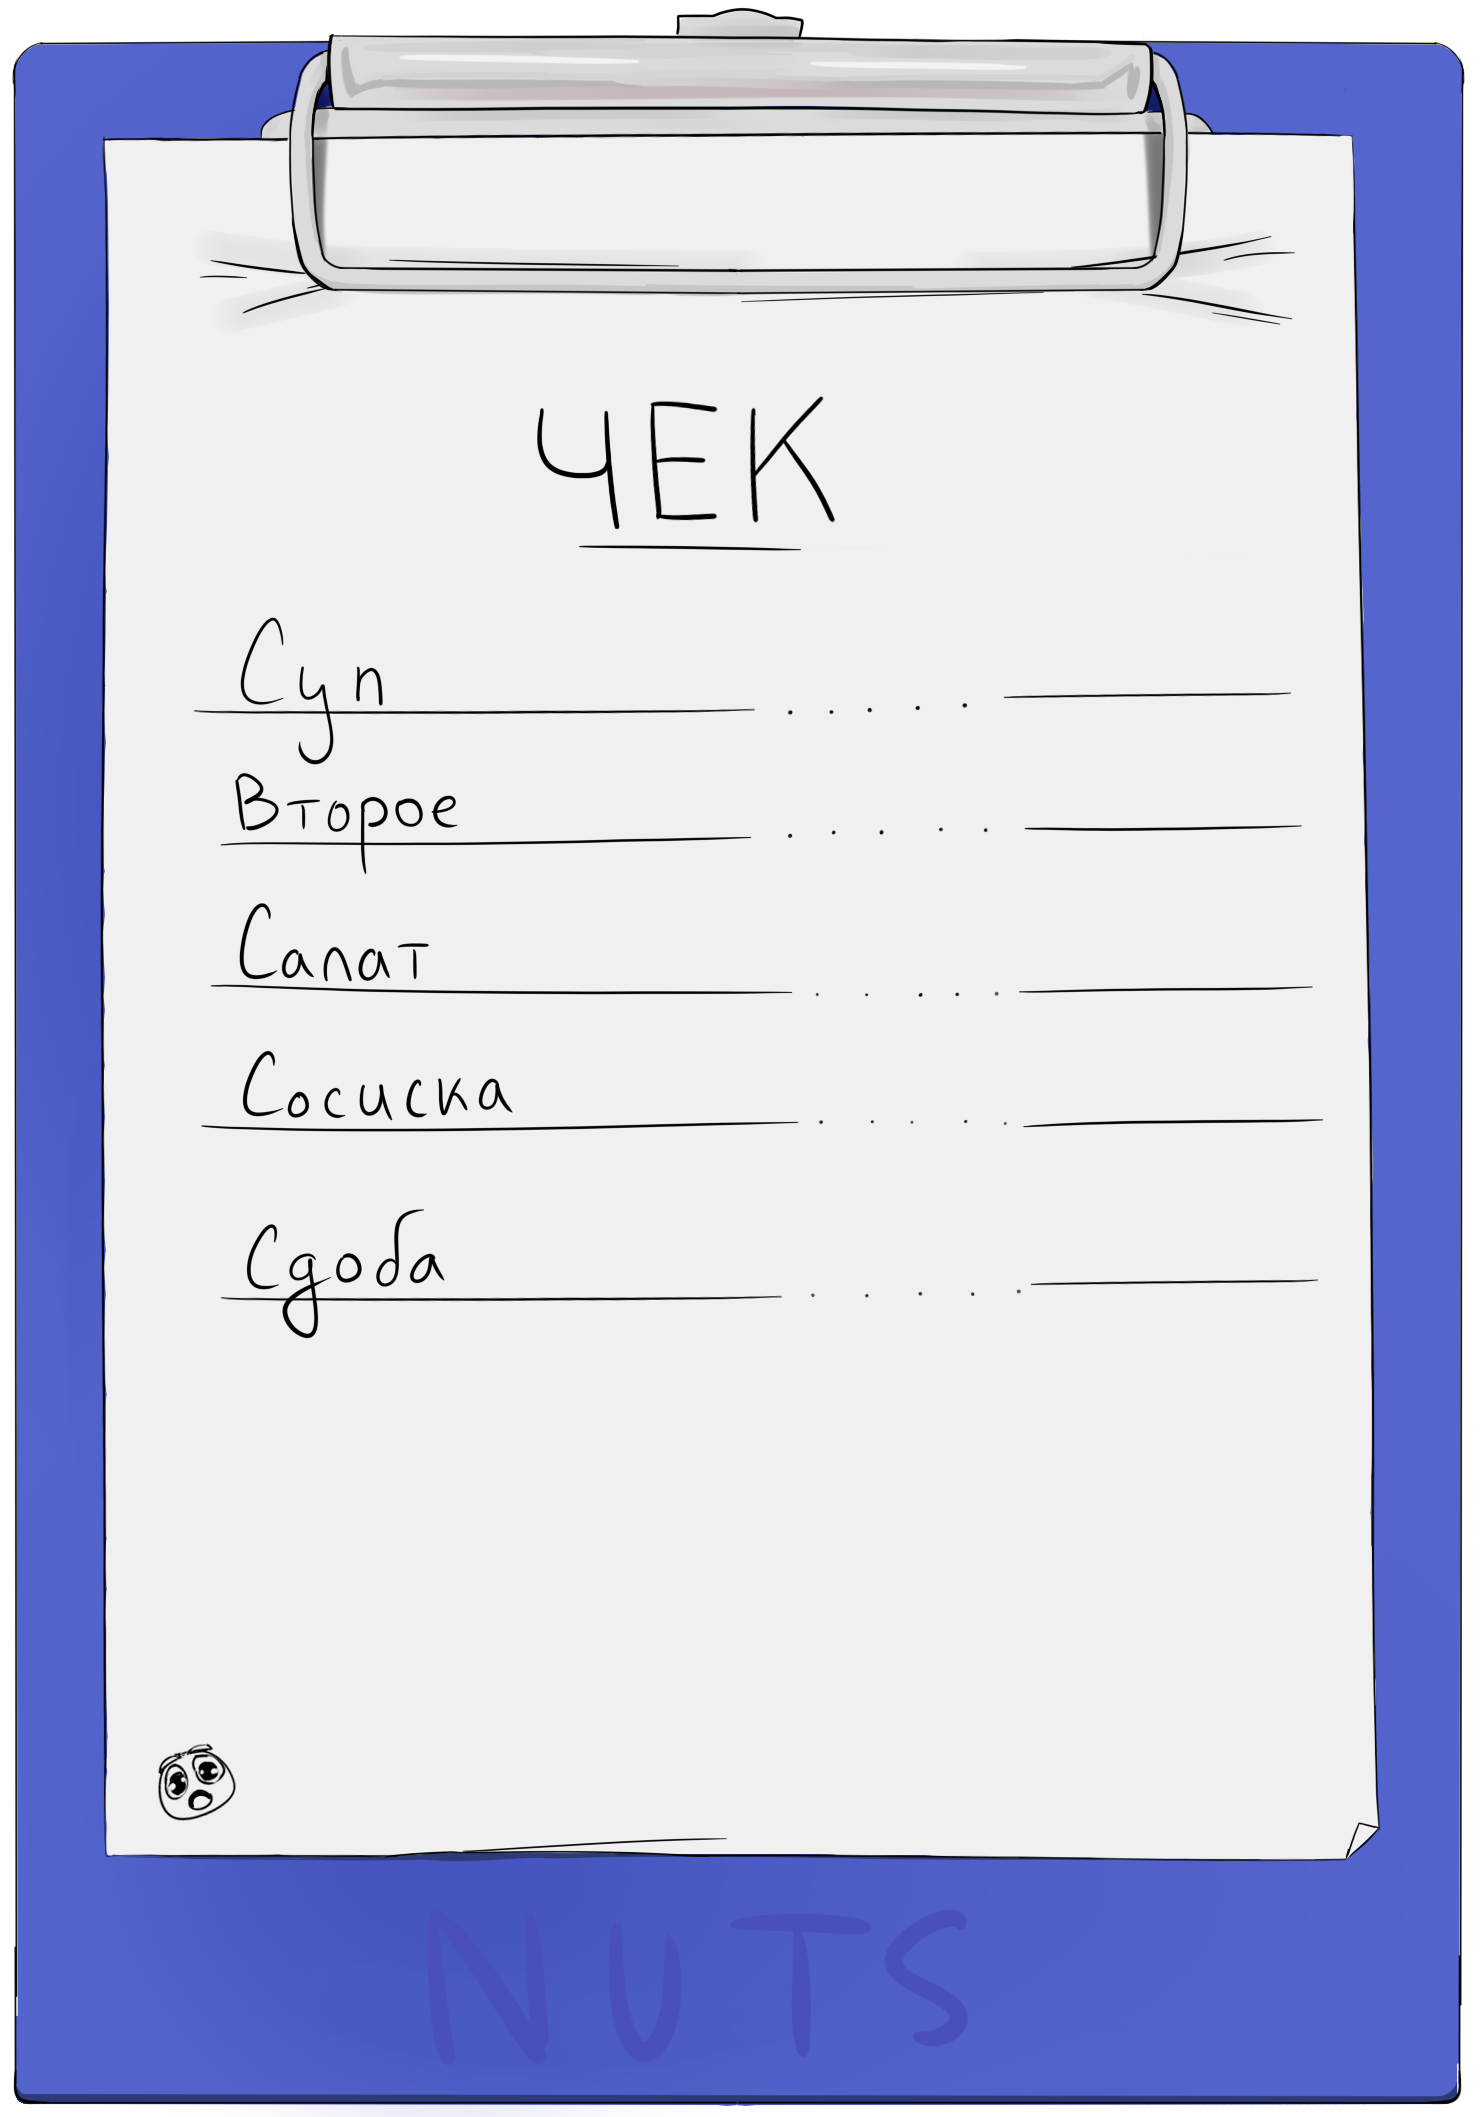 ЧЕК
Суп
Второе
Салат
Сосиска
Сдоба
NUTS